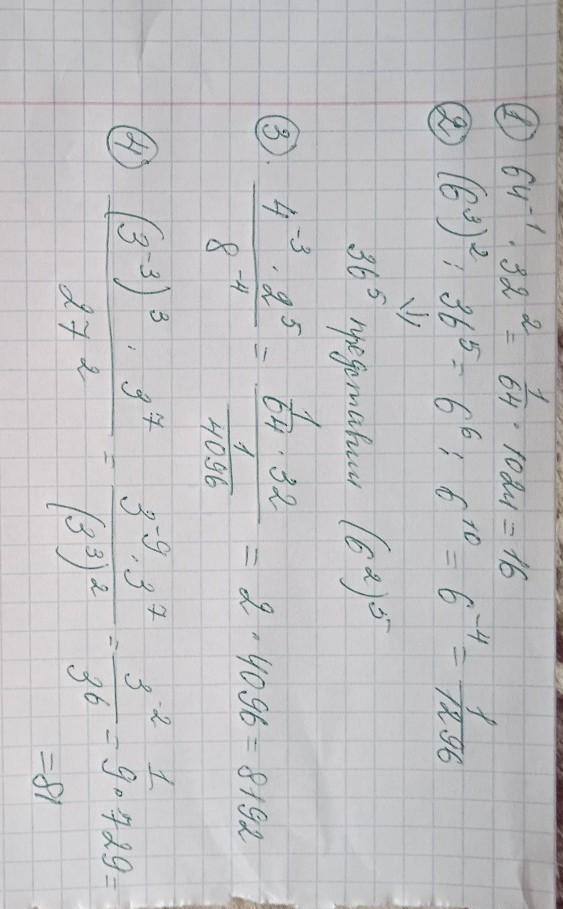 ① 64⁻¹ · 32² = 1/64 · 1024 = 16
② (6³)² : 36⁵ = 6⁶ : 6¹⁰ = 6⁻⁴ = 1/1296
⇓
36⁵ представим (6²)⁵
③ (4⁻³ · 2⁵)/(8⁻⁴) = (1/64 · 32)/(1/4096) = 2 · 4096 = 8192
④ ((3⁻³)³ · 3⁷)/(27²) = (3⁻⁹ · 3⁷)/((3³)²) = 3⁻²/3⁶ = 1/(9 · 729) =
= 81